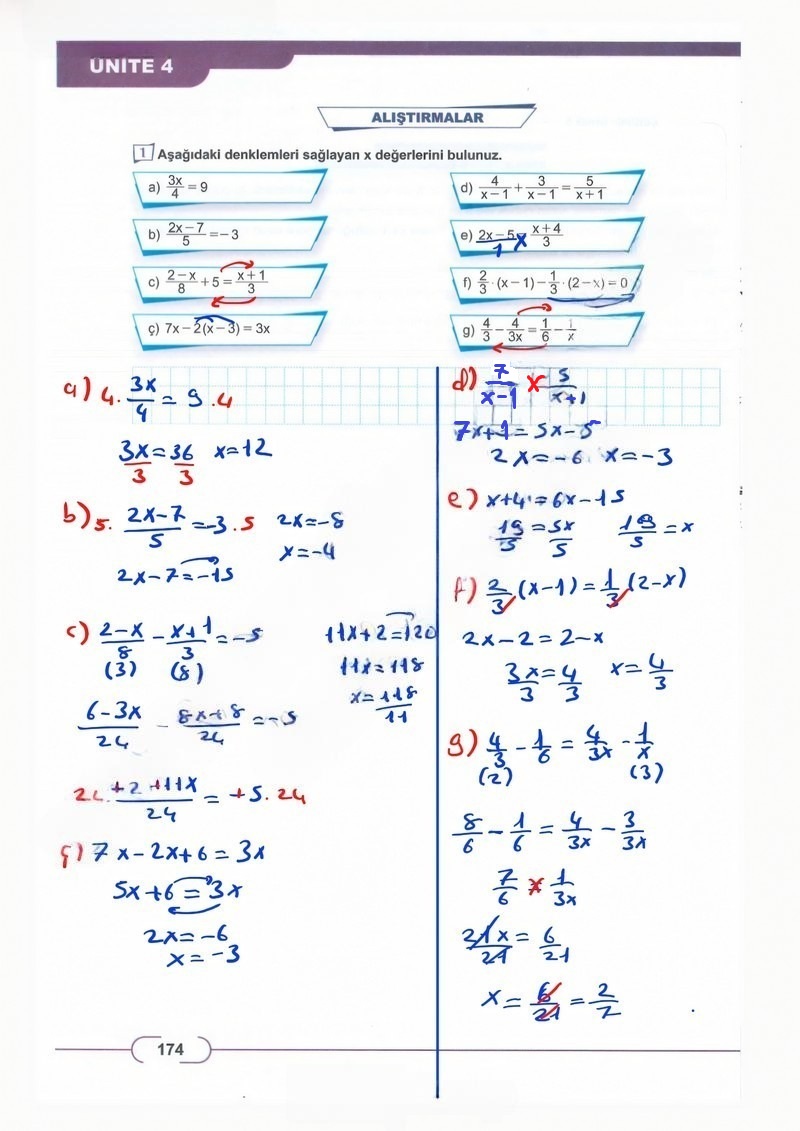 ÜNİTE 4
ALIŞTIRMALAR
1 Aşağıdaki denklemleri sağlayan x değerlerini bulunuz.
a) 3x/4 = 9
b) (2x−7)/5 = −3
c) (2−x)/8 + 5 = (x+1)/3
ç) 7x − 2(x−3) = 3x
d) 4/(x−1) + 3/(x−1) = 5/(x+1)
e) (2x−5)/1 x (x+4)/3
f) 2/3 · (x−1) − 1/3 · (2−x) = 0
g) 4/3 − 4/3x = 1/6 − 1/x
a) 4. 3x/4 = 9 .4
3x/3 = 36/3 x=12
b) 5. (2x-7)/5 = -3 .5 2x=-8
x=-4
2x-7=-15
c) (2-x)/8 - (x+1)/3 = -5
(3) (8)
(6-3x)/24 - (8x+8)/24 = -5
24. (+2+11x)/24 = +5.24
11x+2=120
11x=118
x=118/11
ç) 7x-2x+6=3x
5x+6=3x
2x=-6
x=-3
d) 7/(x-1) x 5/(x+1)
7x+1=5x-5
2x=-6 x=-3
e) x+4=6x-15
19/5=5x/5 19/5=x
f) 2/3.(x-1)=1/3(2-x)
2x-2=2-x
3x/3=4/3 x=4/3
g) 4/3 - 1/6 = 4/3x - 1/x
(2) (3)
8/6 - 1/6 = 4/3x - 3/3x
7/6 x 1/3x
21x/21 = 6/21
x = 6/21 = 2/7
174